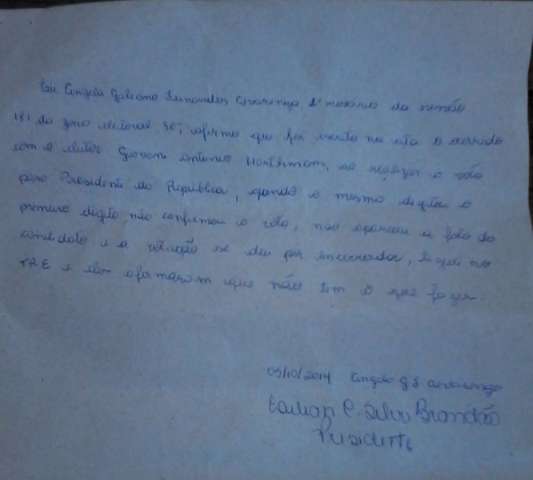 Eu Ângela Fernandes 1º mesário da sessão
181 da zona eleitoral que foi escrito na ata o ocorrido
com o eleitor Giovani Antonio ao realizar o voto
para Presidente da República, quando o mesmo digita o
primeiro digito não confirmou o voto, não apareceu a foto do
candidato e a votação se deu por encerrada, liguei no
TRE e eles afirmaram que não tem o que fazer.
05/10/2014 Angela G F
C. Silva Brandão
Presidente